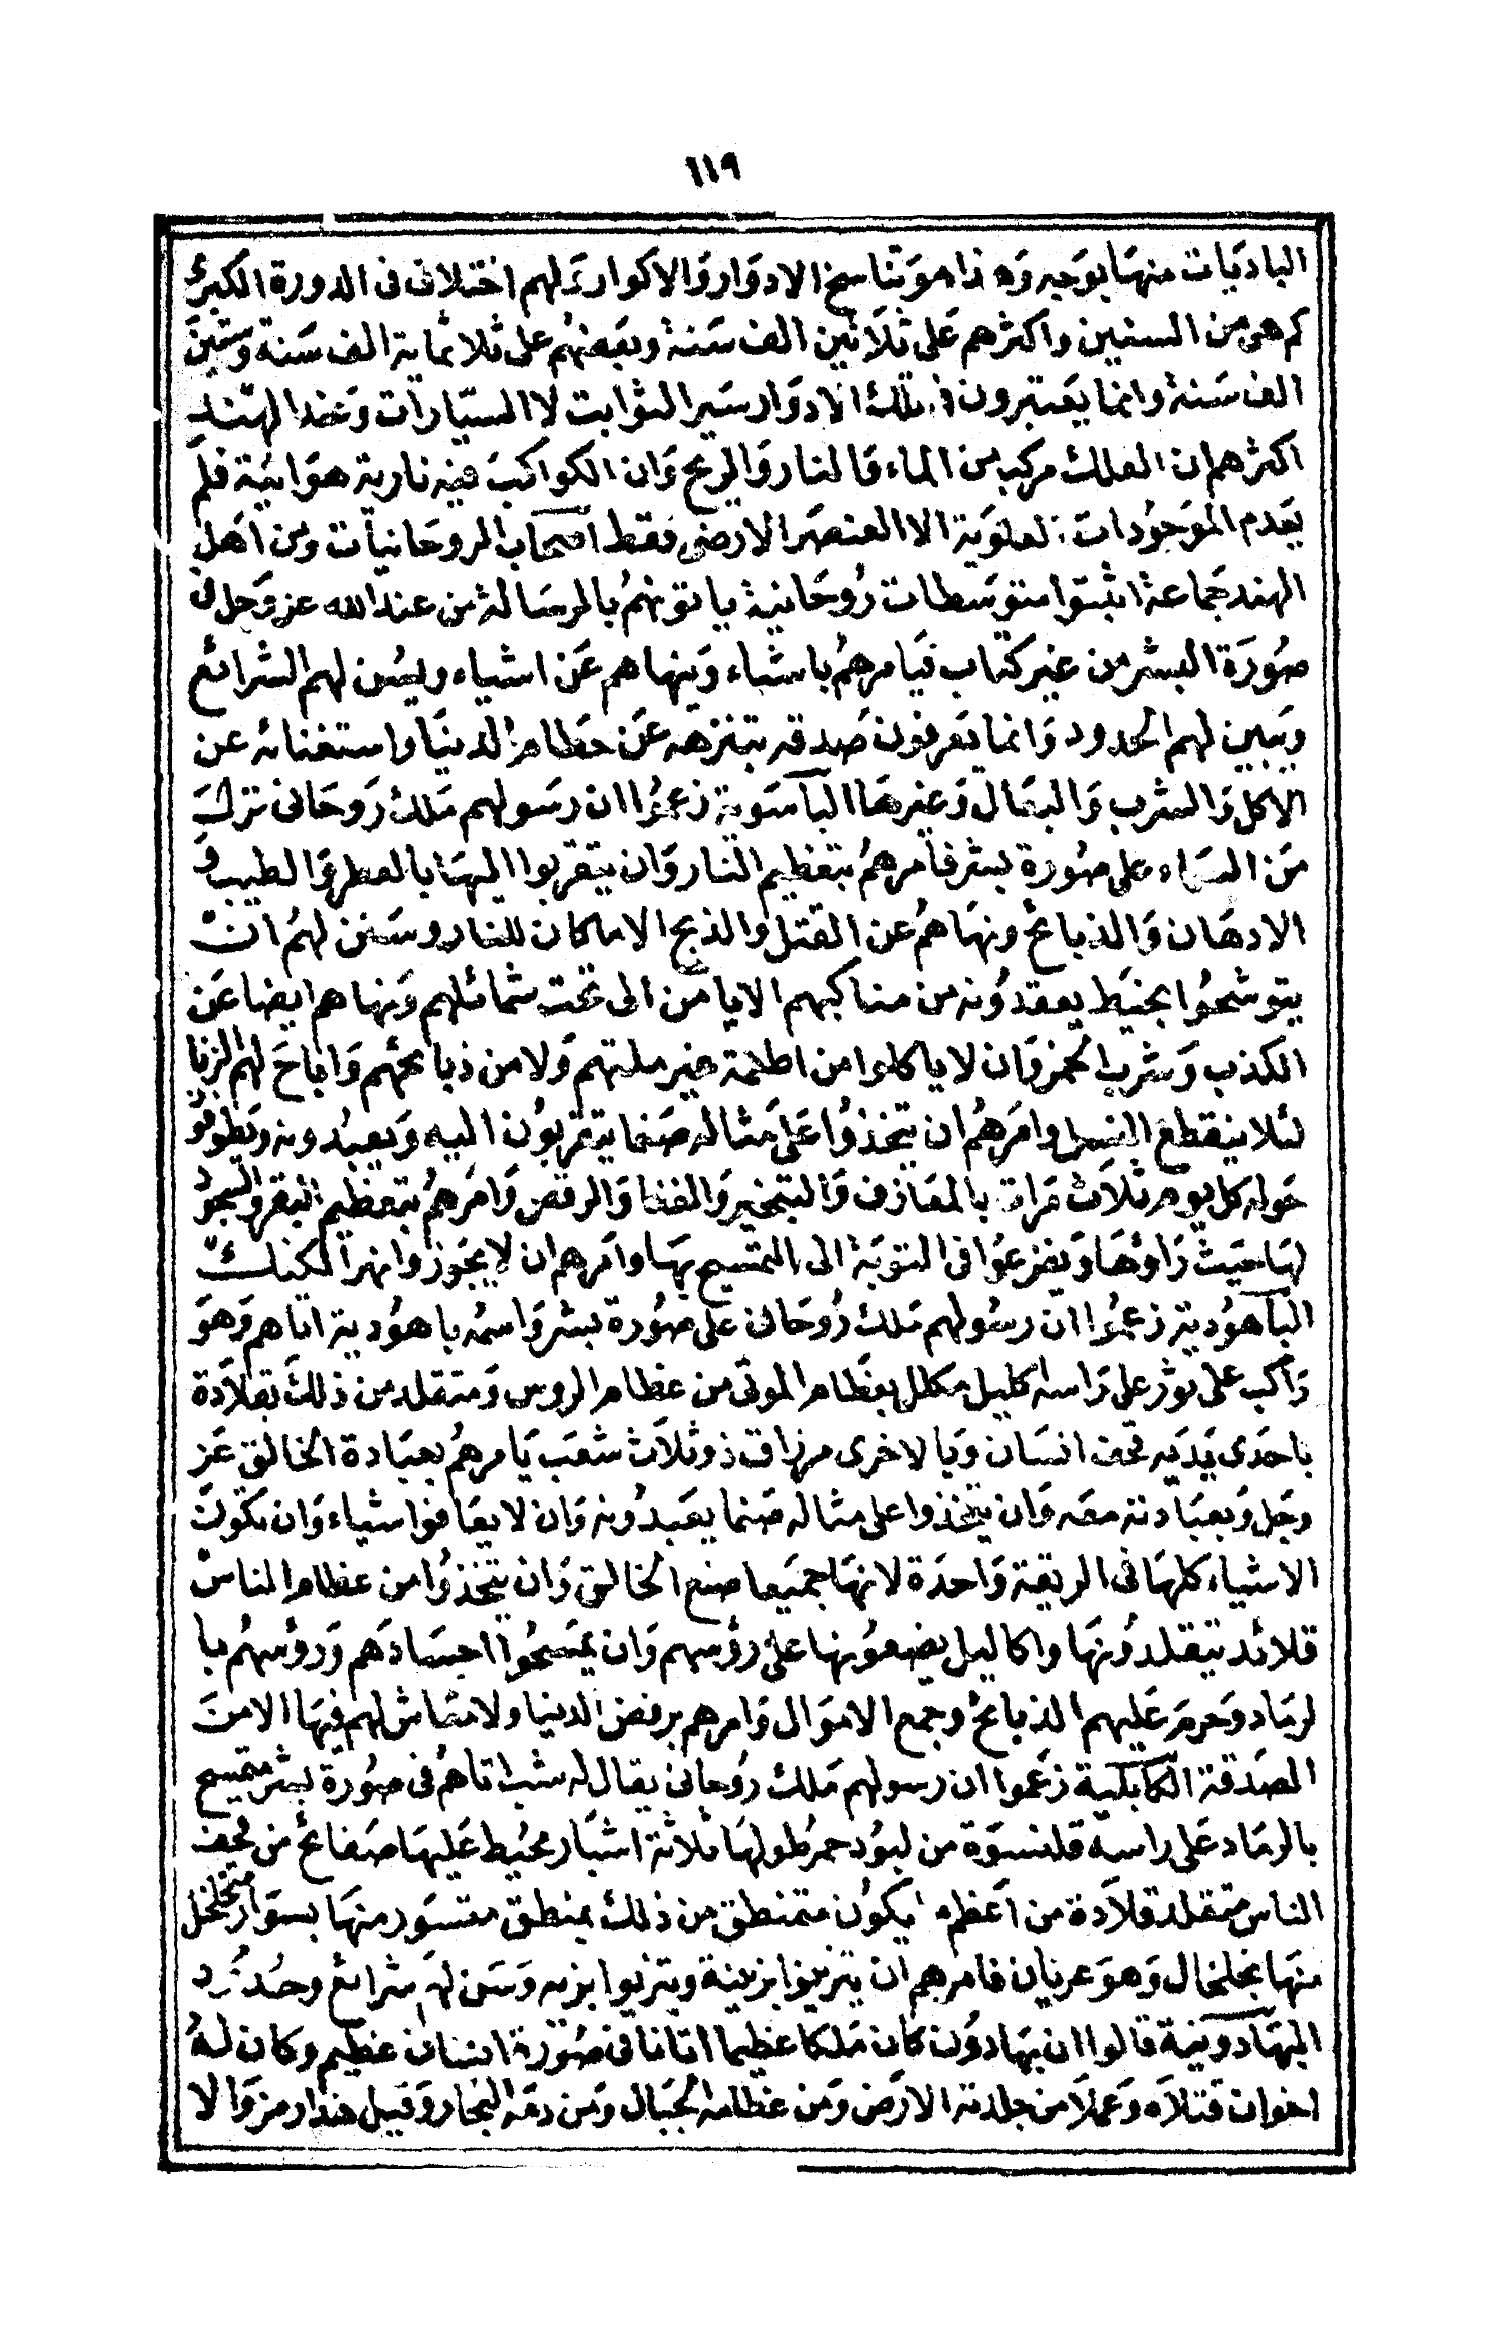 ١١٩
الباديات منها بوجه وهذا هو تناسخ الادوار والاكوار ولهم اختلاف فى الدورة الكبرى
كم هى من السنين واكثرهم على ثلاثين الف سنة وبعضهم على ثلاثماية الف سنة وستين
الف سنة وانما يعتبرون فى تلك الادوار سير الثوابت لا السيارات وعند الهند
اكثرهم ان الفلك مركب من الماء والنار والريح وان الكواكب فيه نارية هوائية فلم
يعدم الموجودات العلوية الا العنصر الارضى فقط اصحاب الروحانيات ومن اهل
الهند جماعة اثبتوا متوسطات روحانية ياتونهم بالرسالة من عند الله عز وجل فى
صورة البشر من غير كتاب فيامرهم باشياء وينهاهم عن اشياء ويسن لهم الشرائع
ويبين لهم الحدود وانما يعرفون صدقه بتنزهه عن حطام الدنيا واستغنائه عن
الاكل والشرب والبعال وغيرها الباسوية زعموا ان رسولهم ملك روحانى نزل
من السماء على صورة بشر فامرهم بتعظيم النار وان يتقربوا اليها بالعطر والطيب و
الادهان والذبائح ونهاهم عن القتل والذبح الا ما كان للنار وسنن لهم ان
يتوشحوا بخيط يعقدونه من مناكبهم الايامن الى تحت شمائلهم ونهاهم ايضا عن
الكذب وشرب الخمر وان لا ياكلوا من اطلمة غير ملتهم ولا من ذبائحهم واباح لهم الزنا
لئلا ينقطع النسل وامرهم ان يتخذوا على مثاله صنما يتقربون اليه ويعبدونه ويطوفو
حوله كل يوم ثلاث مرات بالمعازف والتبخير والغنا والرقص وامرهم بتعظيم البقر والسجود
لها حيث راوها ويفزعوا فى التوبة الى التمسح بها وامرهم ان لا يجوزوا نهر الكنك
الباهودية زعموا ان رسولهم ملك روحانى على صورة بشر واسمه باهودية اتاهم وهو
راكب على ثور على راسه اكليل مكلل بعظام الموتى من عظام الروس ومتقلد من ذلك بقلادة
باحدى يديه قحف انسان وبالاخرى مزراق ذو ثلاث شعب يامرهم بعبادة الخالق عز
وجل وبعبادته معه وان يتخذوا على مثاله صنما يعبدونه وان لا يعافوا شياء وان يكون
الاشياء كلها فى الريقة واحدة لانها جميعا صنع الخالق وان يتخذوا من عظام الناس
قلائد يتقلدونها واكاليل يضعونها على رؤسهم وان يمسحوا اجسادهم ورؤسهم با
لرماد وحرم عليهم الذبائح وجمع الاموال وامرهم برفض الدنيا ولا معاش لهم فيها الا من
الصدقة الكابلية زعموا ان رسولهم ملك روحانى يقال له شب اتاهم فى صورة بشر متمسح
بالرماد على راسه قلنسوة من لبود حمر طولها ثلاثة اشبار مخيط عليها صفائح من قحف
الناس متقلد قلادة من اعظم ما يكون متمنطق من ذلك بمنطق متسور منها بسوار متخلخل
منها بخلخال وهو عريان فامرهم ان يتزينوا بزينة ويتزيوا بزيه وسن لهم شرائع وحدود
البهادونية قالوا ان بهادون كان ملكا عظيما اتانا فى صورة انسان عظيم وكان له
اخوان قتلاه وعملا من جلدته الارض ومن عظامه الجبال ومن دمه البحار وقيل هذا رمز والا